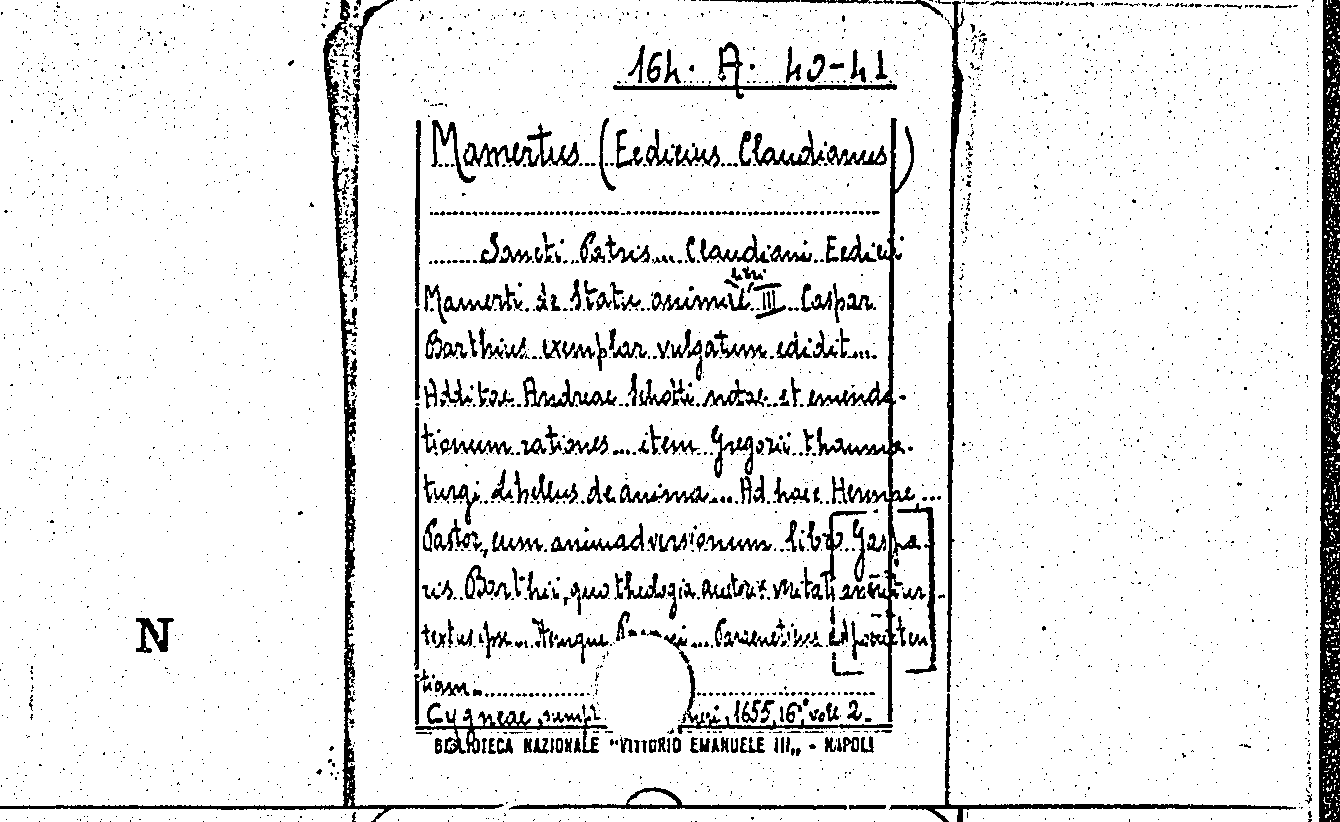 164. A. 40-41
Mamertus (Ecdicius Claudianus)
Sancti Patris... Claudiani Ecdicii
libri
Mamerti de Statu animae III Caspar
Barthius exemplar vulgatum edidit...
Additae Andreae Schotti notae et emenda-
tionum rationes... item Gregorii thauma-
turgi libellus de anima... Ad haec Hermae...
Pastor, cum animadversionum libro Gaspa-
ris Barthii, quo theologia
textus ipse... Itemque ... Paraenetibus ad poeniten
tiam...
Cygneae, 1655, 16° voll 2.
BIBLIOTECA NAZIONALE "VITTORIO EMANUELE III„ - NAPOLI
N